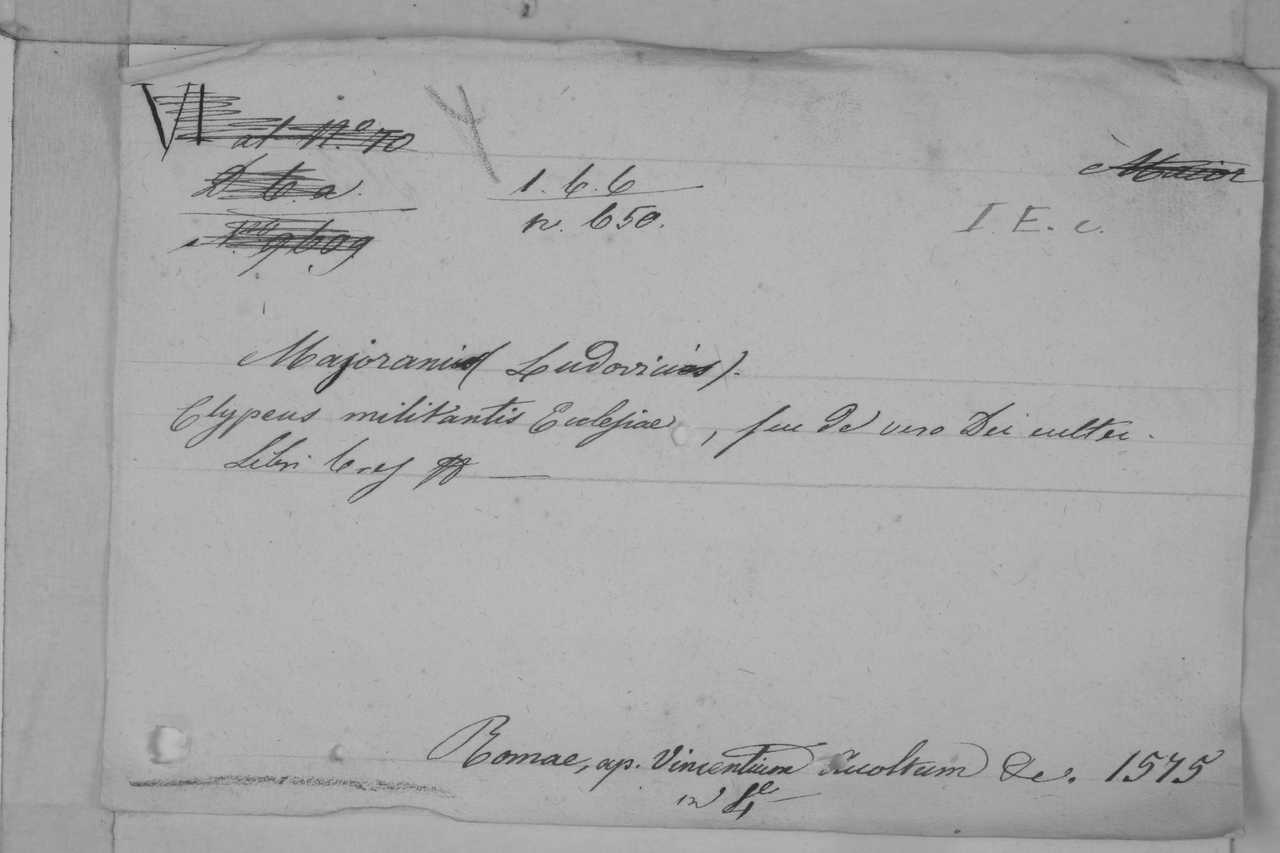 VI
at Nº 70
D b. a.
Nº 9609
1. 6. 6
n. 650.
Maior
I. E. c.
Majoranus (Ludovicus).
Clypeus militantis Ecclesiae, seu de vero Dei cultu.
Libri tres
Romae, ap. Vincentium Accoltum &c. 1575
in 4º